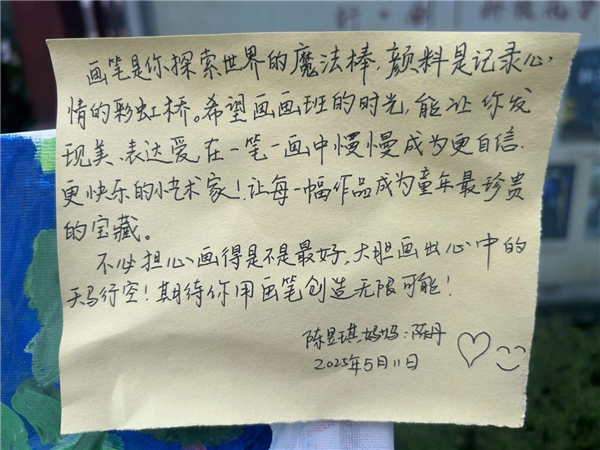 画笔是你探索世界的魔法棒,颜料是记录心
情的彩虹桥。希望画画班的时光,能让你发
现美、表达爱,在一笔一画中慢慢成为更自信、
更快乐的小艺术家!让每一幅作品成为童年最珍贵
的宝藏。
不必担心画得是不是最好,大胆画出心中的
天马行空!期待你用画笔创造无限可能!
陈昱琪妈妈:陈丹
2025年5月11日